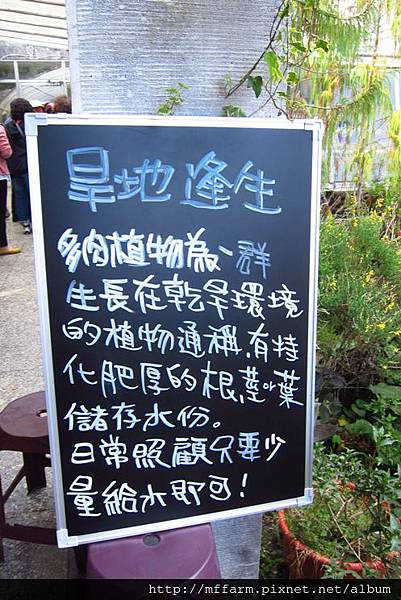 旱地逢生
多肉植物為一群
生長在乾旱環境
的植物通稱,有特
化肥厚的根,莖、葉
儲存水份。
日常照顧只要少
量給水即可!
http://mffarm.pixnet.net/album